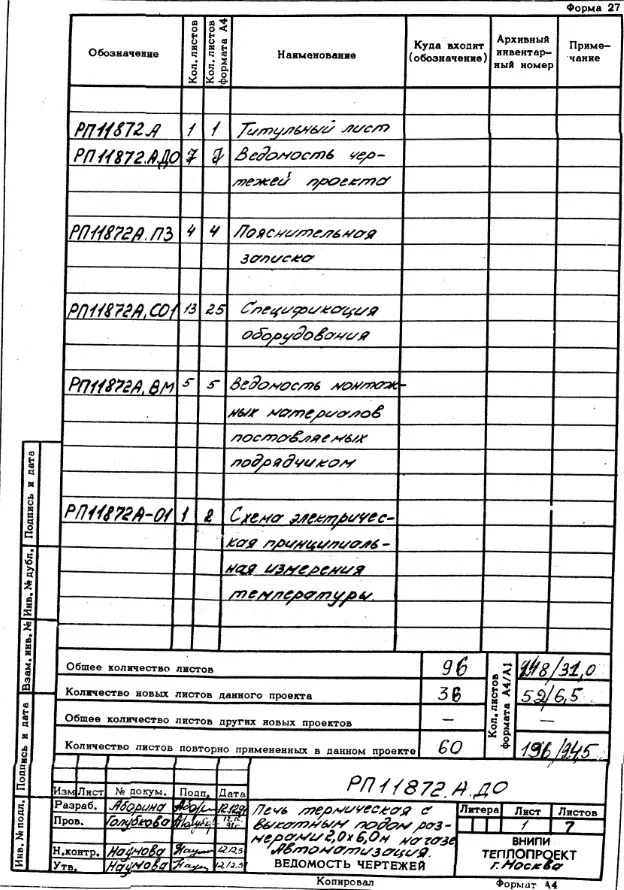 Форма 27
Обозначение Кол. листов Кол. листов формата А4 Наименование Куда входит (обозначение) Архивный инвентарный номер Приме-чание
РП11872.А 1 1 Титульный лист
РП11872.А.ДО 7 7 Ведомость чер-
тежей проекта
РП11872А.ПЗ 4 4 Пояснительная
записка
РП11872А.СО1 13 25 Спецификация
оборудования
РП11872А.ВМ 5 5 Ведомость монтаж-
ных материалов
поставляемых
подрядчиком
РП11872А-01 1 2 Схема электричес-
кая принципиаль-
ная измерения
температуры.
Кол. листов формата А4/А1
Общее количество листов 96 /31,0
Количество новых листов данного проекта 36 52/6,5
Общее количество листов других новых проектов — —
Количество листов повторно примененных в данном проекте 60 196/24,5
Подпись и дата
Инв. № дубл.
Взам. инв. №
Подпись и дата
Инв. № подл.
РП11872.А.ДО
Изм Лист № докум. Подп. Дата
Разраб. Аборина
Пров. Голубкова
Н.контр. Наумова
Утв. Наумова
Печь термическая с
выкатным подом раз-
мерами 2,0х6,0м на газе
Автоматизация.
ВЕДОМОСТЬ ЧЕРТЕЖЕЙ
Литера Лист Листов
1 7
ВНИПИ
ТЕПЛОПРОЕКТ
г. Москва
Копировал Формат А4